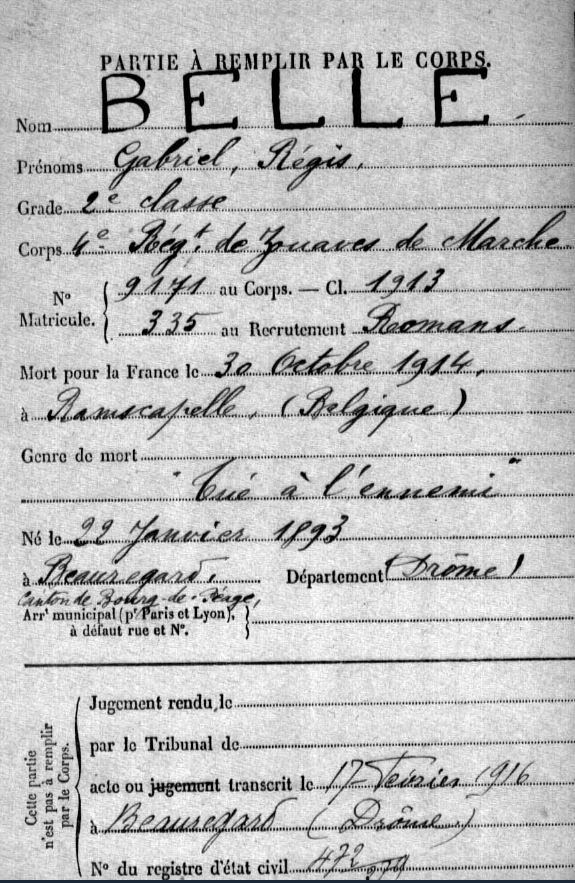 PARTIE À REMPLIR PAR LE CORPS.
Nom BELLE
Prénoms Gabriel, Régis,
Grade 2e classe
Corps 4e Régt de Zouaves de Marche
N° Matricule. 9171 au Corps. — Cl. 1913
335 au Recrutement Romans.
Mort pour la France le 30 Octobre 1914,
à Ramscapelle, (Belgique)
Genre de mort
"Tué à l'ennemi"
Né le 22 Janvier 1893
à Beauregard, Département (Drôme)
Canton de Bourg-de-Péage,
Arrt municipal (pr Paris et Lyon),
à défaut rue et N°.
Jugement rendu le
par le Tribunal de
acte ou jugement transcrit le 17 Février 1916
à Beauregard (Drôme)
N° du registre d'état civil
Cette partie
n'est pas à remplir
par le Corps.